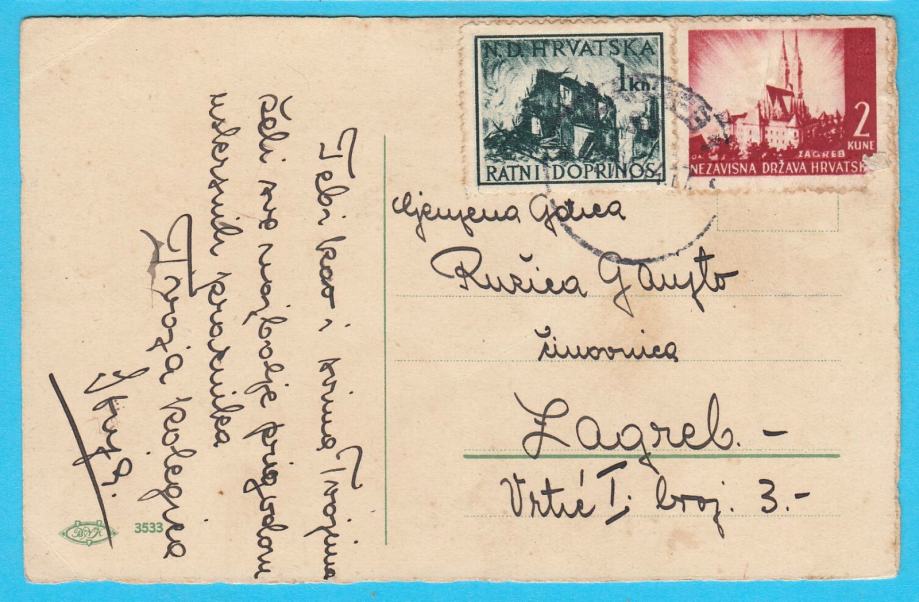 N.D.HRVATSKA
1 kn.
RATNI DOPRINOS
2
KUNE
ZAGREB
NEZAVISNA DRŽAVA HRVATSK
Cijenjena Gdica
Ružica
činovnica
Zagreb. -
Vrtić I. broj 3.-
Tebi kao i svima Tvojima
želi sve najbolje prigodom
uskrsnih praznika
Tvoja kolegica
BNK
3533